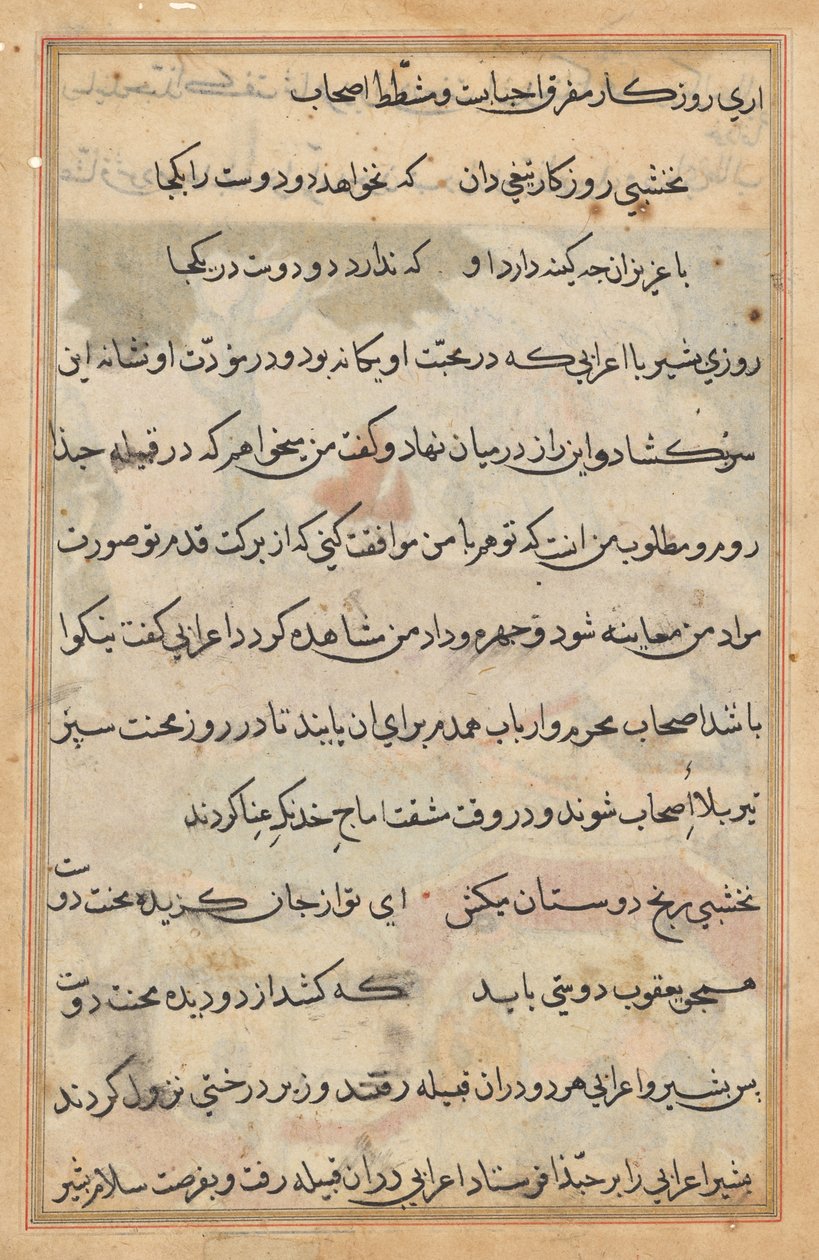 اری روزکار مفرق احبابست و مشطط اصحاب
نخشبی روزکار تیغی دان که نخواهد دو دوست را یکجا
با عزیزان جه کینه دارد او که ندارد دو دوست در یکجا
روزی بشیر با اعرابی که در محبّت او یکانه بود و در مؤدّت او نشانه این
سر بکشاد و این راز در میان نهاد و کفت من میخواهم که در قبیله حبذا
روم و مطلوب من انست که تو هم با من موافقت کنی که از برکت قدم تو صورت
مراد من معاینه شود و جهره وداد من مشاهده کردد اعرابی کفت نیکوا
باشد اصحاب محرم و ارباب همدم برای ان یابند تا در روز محنت سپر
تیر بلاء اصحاب شوند و در وقت مشقت اماج خدنک عنا کردند
نخشبی رنج دوستان میکش ای تو از جان کزیده محنت دوست
همجو یعقوب دوستی باید که کشد از دو دیده محنت دوست
پس بشیر و اعرابی هر دو دران قبیله رفتند و زیر درختی نزول کردند
بشیر اعرابی را بر حبّذا فرستاد اعرابی دران قبیله رفت و بفرصت سلام بشیر